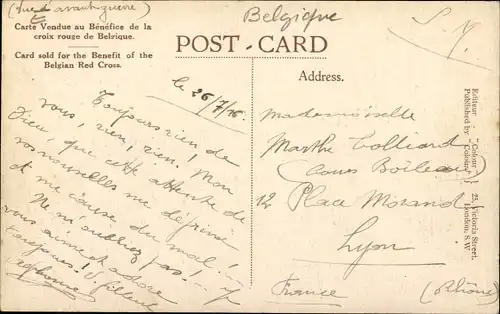 (Vue d'avant guerre)
Belgique
S. M.
Carte Vendue au Bénéfice de la
croix rouge de Belrique.
Card sold for the Benefit of the
Belgian Red Cross.
POST - CARD
Address.
le 26/7/16
Toujours rien de
vous, rien, rien! Mon
Dieu, que cette attente de
vos nouvelles me déprime
et me cause du mal!
Ne m'oubliez pas
vous aime et adore
toujours!
Alphonse
Mademoiselle
Marthe Tolliard
(Cours Boileau)
12 Place Morand
Lyon
France (Rhône)
Editeur "Colour"
Published by "Colour"
25, Victoria Street,
London, S.W.